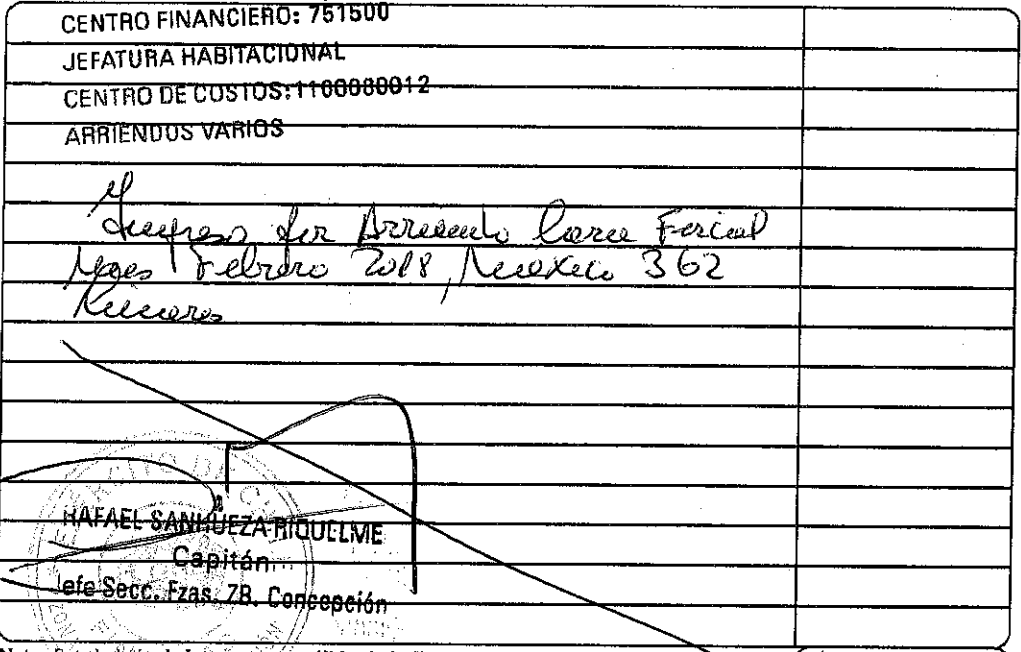 CENTRO FINANCIERO: 751500
JEFATURA HABITACIONAL
CENTRO DE COSTOS: 1100080012
ARRIENDOS VARIOS
Ingreso por Arriendo Casa Fiscal
Mes Febrero 2018, 362
Linares
RAFAEL SANHUEZA RIQUELME
Capitán
Jefe Secc. Fzas. ZB. Concepción